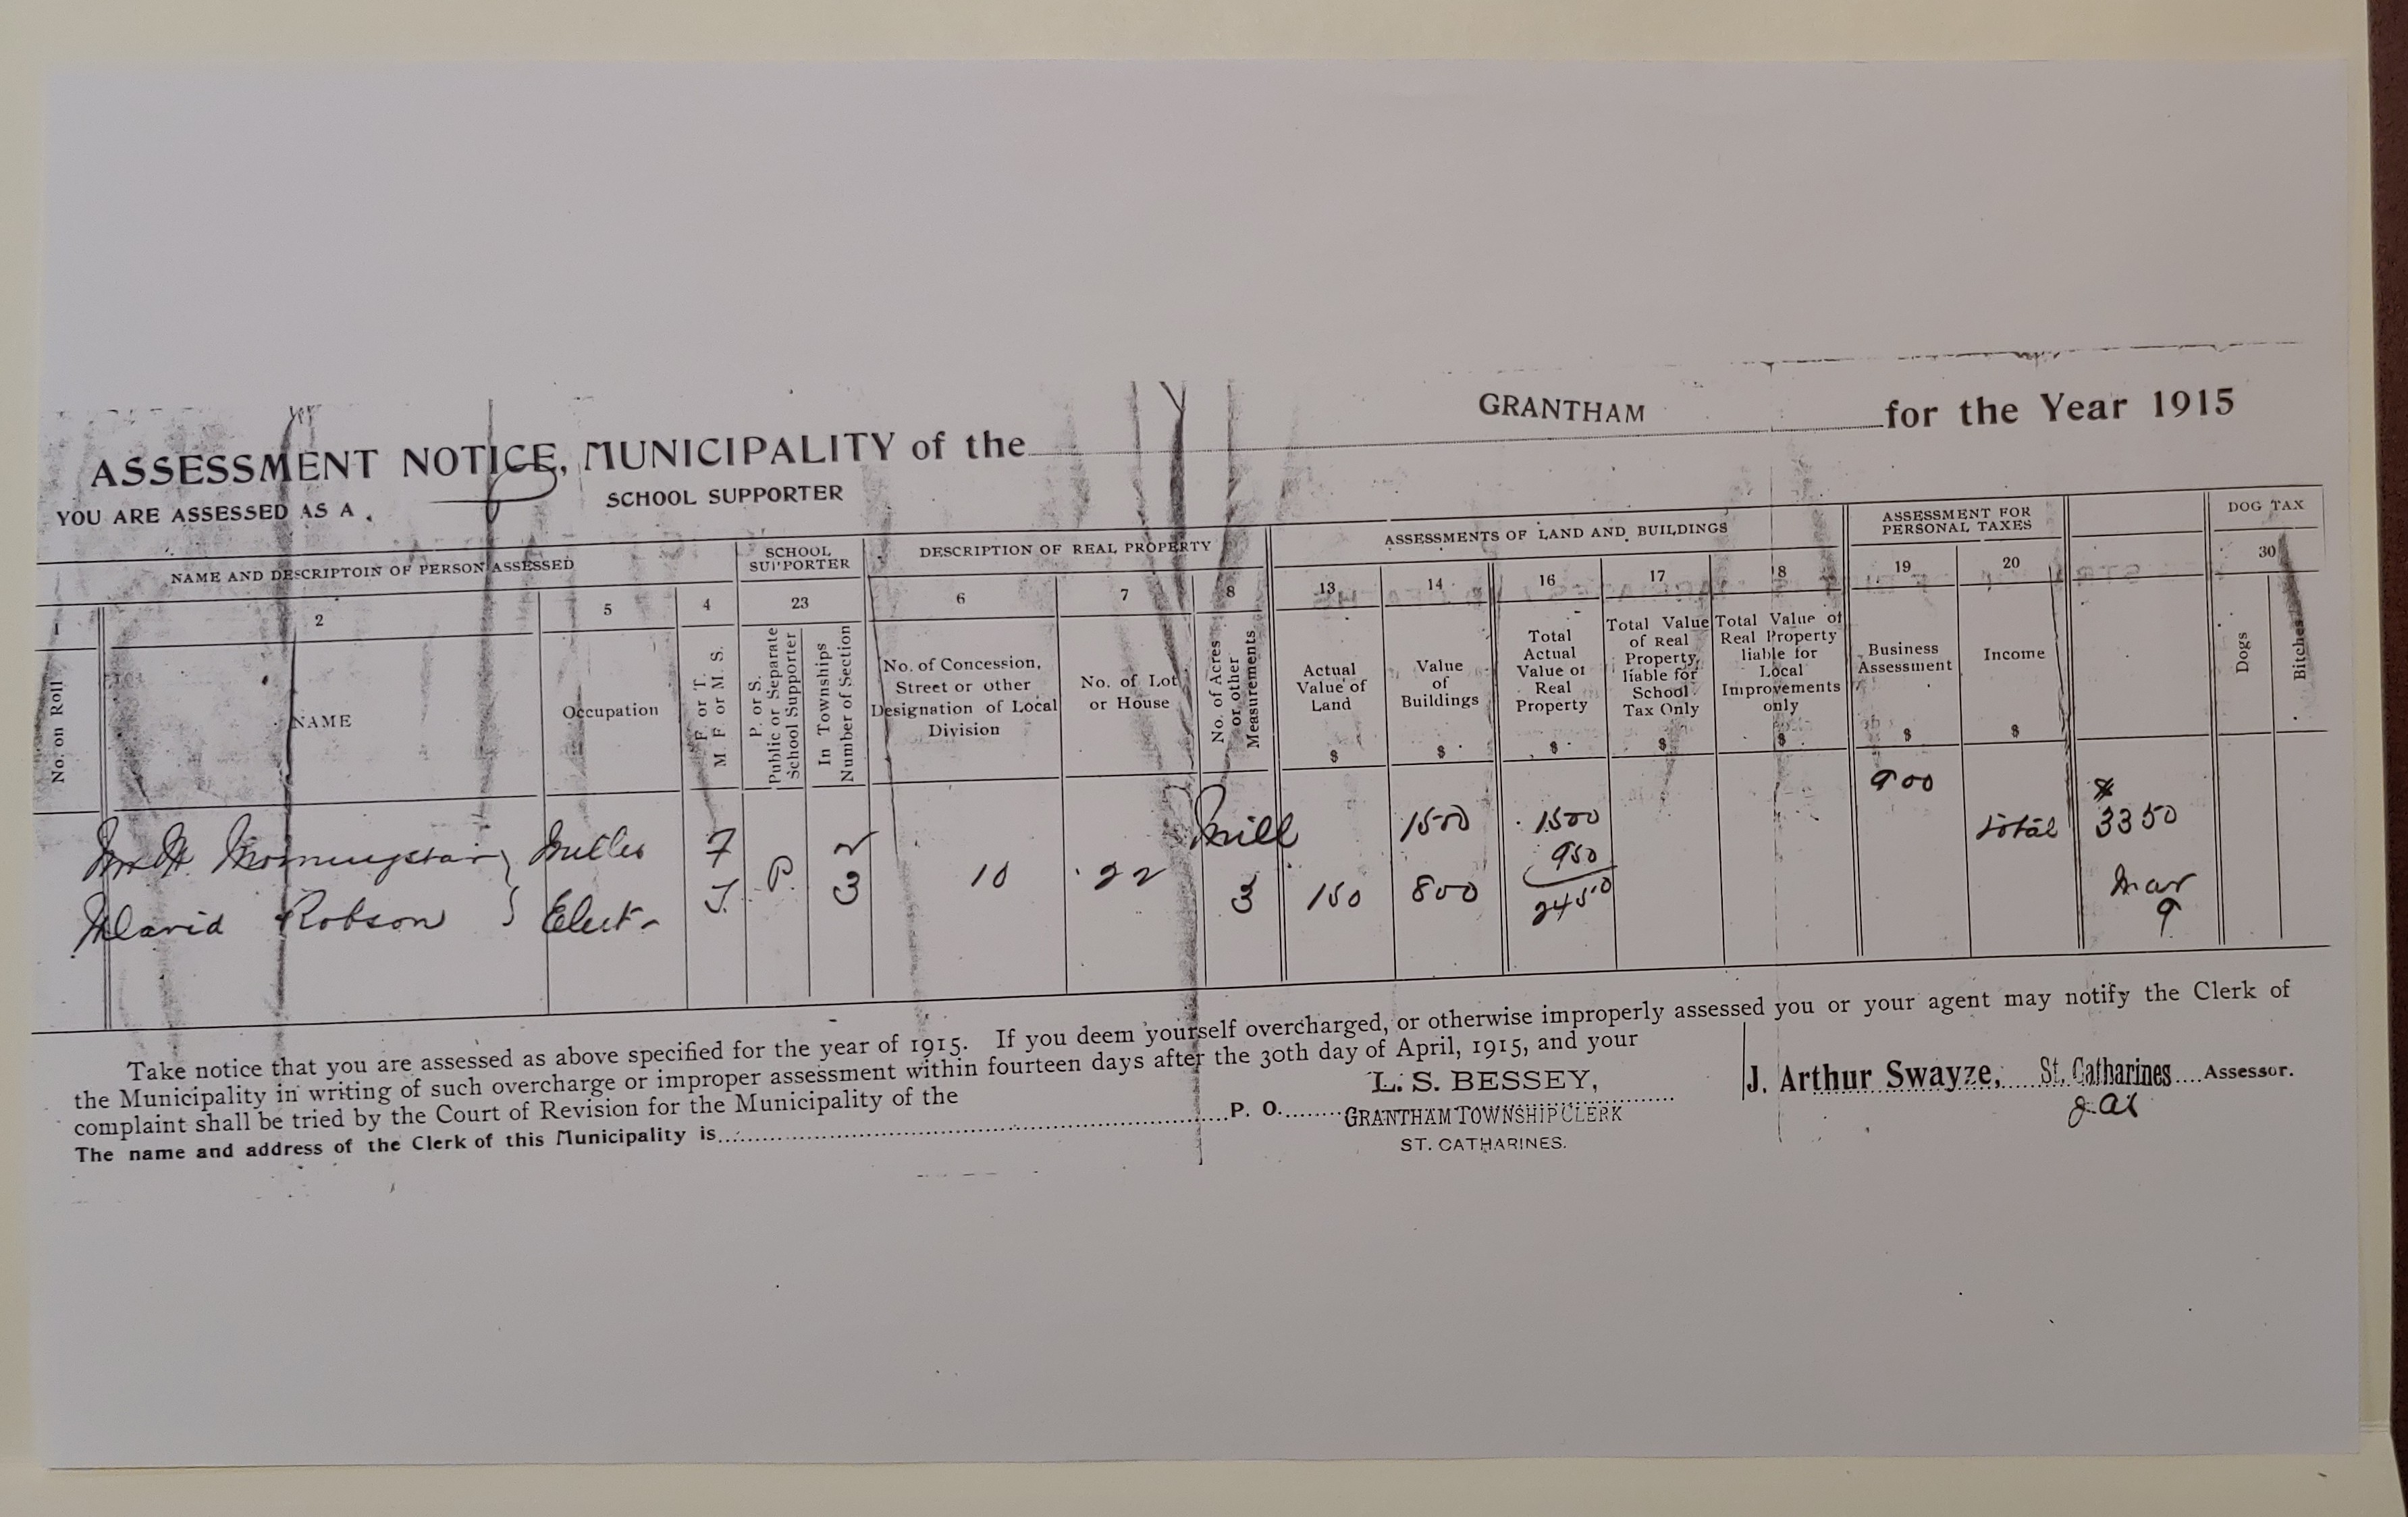 GRANTHAM
ASSESSMENT NOTICE, MUNICIPALITY of the for the Year 1915
YOU ARE ASSESSED AS A P SCHOOL SUPPORTER
NAME AND DESCRIPTOIN OF PERSON ASSESSED
SCHOOL SUPPORTER
DESCRIPTION OF REAL PROPERTY
ASSESSMENTS OF LAND AND BUILDINGS
ASSESSMENT FOR PERSONAL TAXES
DOG TAX
1 2 5 4 23 6 7 8 13 14 16 17 18 19 20 30
No. on Roll
NAME
Occupation
F or T.
M F or M. S.
P. or S.
Public or Separate
School Supporter
In Townships
Number of Section
No. of Concession,
Street or other
Designation of Local
Division
No. of Lot
or House
No. of Acres
or other
Measurements
Actual
Value of
Land
$
Value
of
Buildings
$
Total
Actual
Value of
Real
Property
$
Total Value
of Real
Property,
liable for
School
Tax Only
$
Total Value of
Real Property
liable for
Local
Improvements
only
$
Business
Assessment
$
Income
$
Dogs
Bitches
Wm H. Morningstar Miller F P. 2 Mill 1500 1500 900 total 3350
950
David Robson Elect- T. 3 10 22 3 150 800 2450 Mar
9
Take notice that you are assessed as above specified for the year of 1915. If you deem yourself overcharged, or otherwise improperly assessed you or your agent may notify the Clerk of
the Municipality in writing of such overcharge or improper assessment within fourteen days after the 30th day of April, 1915, and your
complaint shall be tried by the Court of Revision for the Municipality of the
L. S. BESSEY,
J. Arthur Swayze, St. Catharines Assessor.
The name and address of the Clerk of this Municipality is P. O. GRANTHAM TOWNSHIP CLERK
ST. CATHARINES.